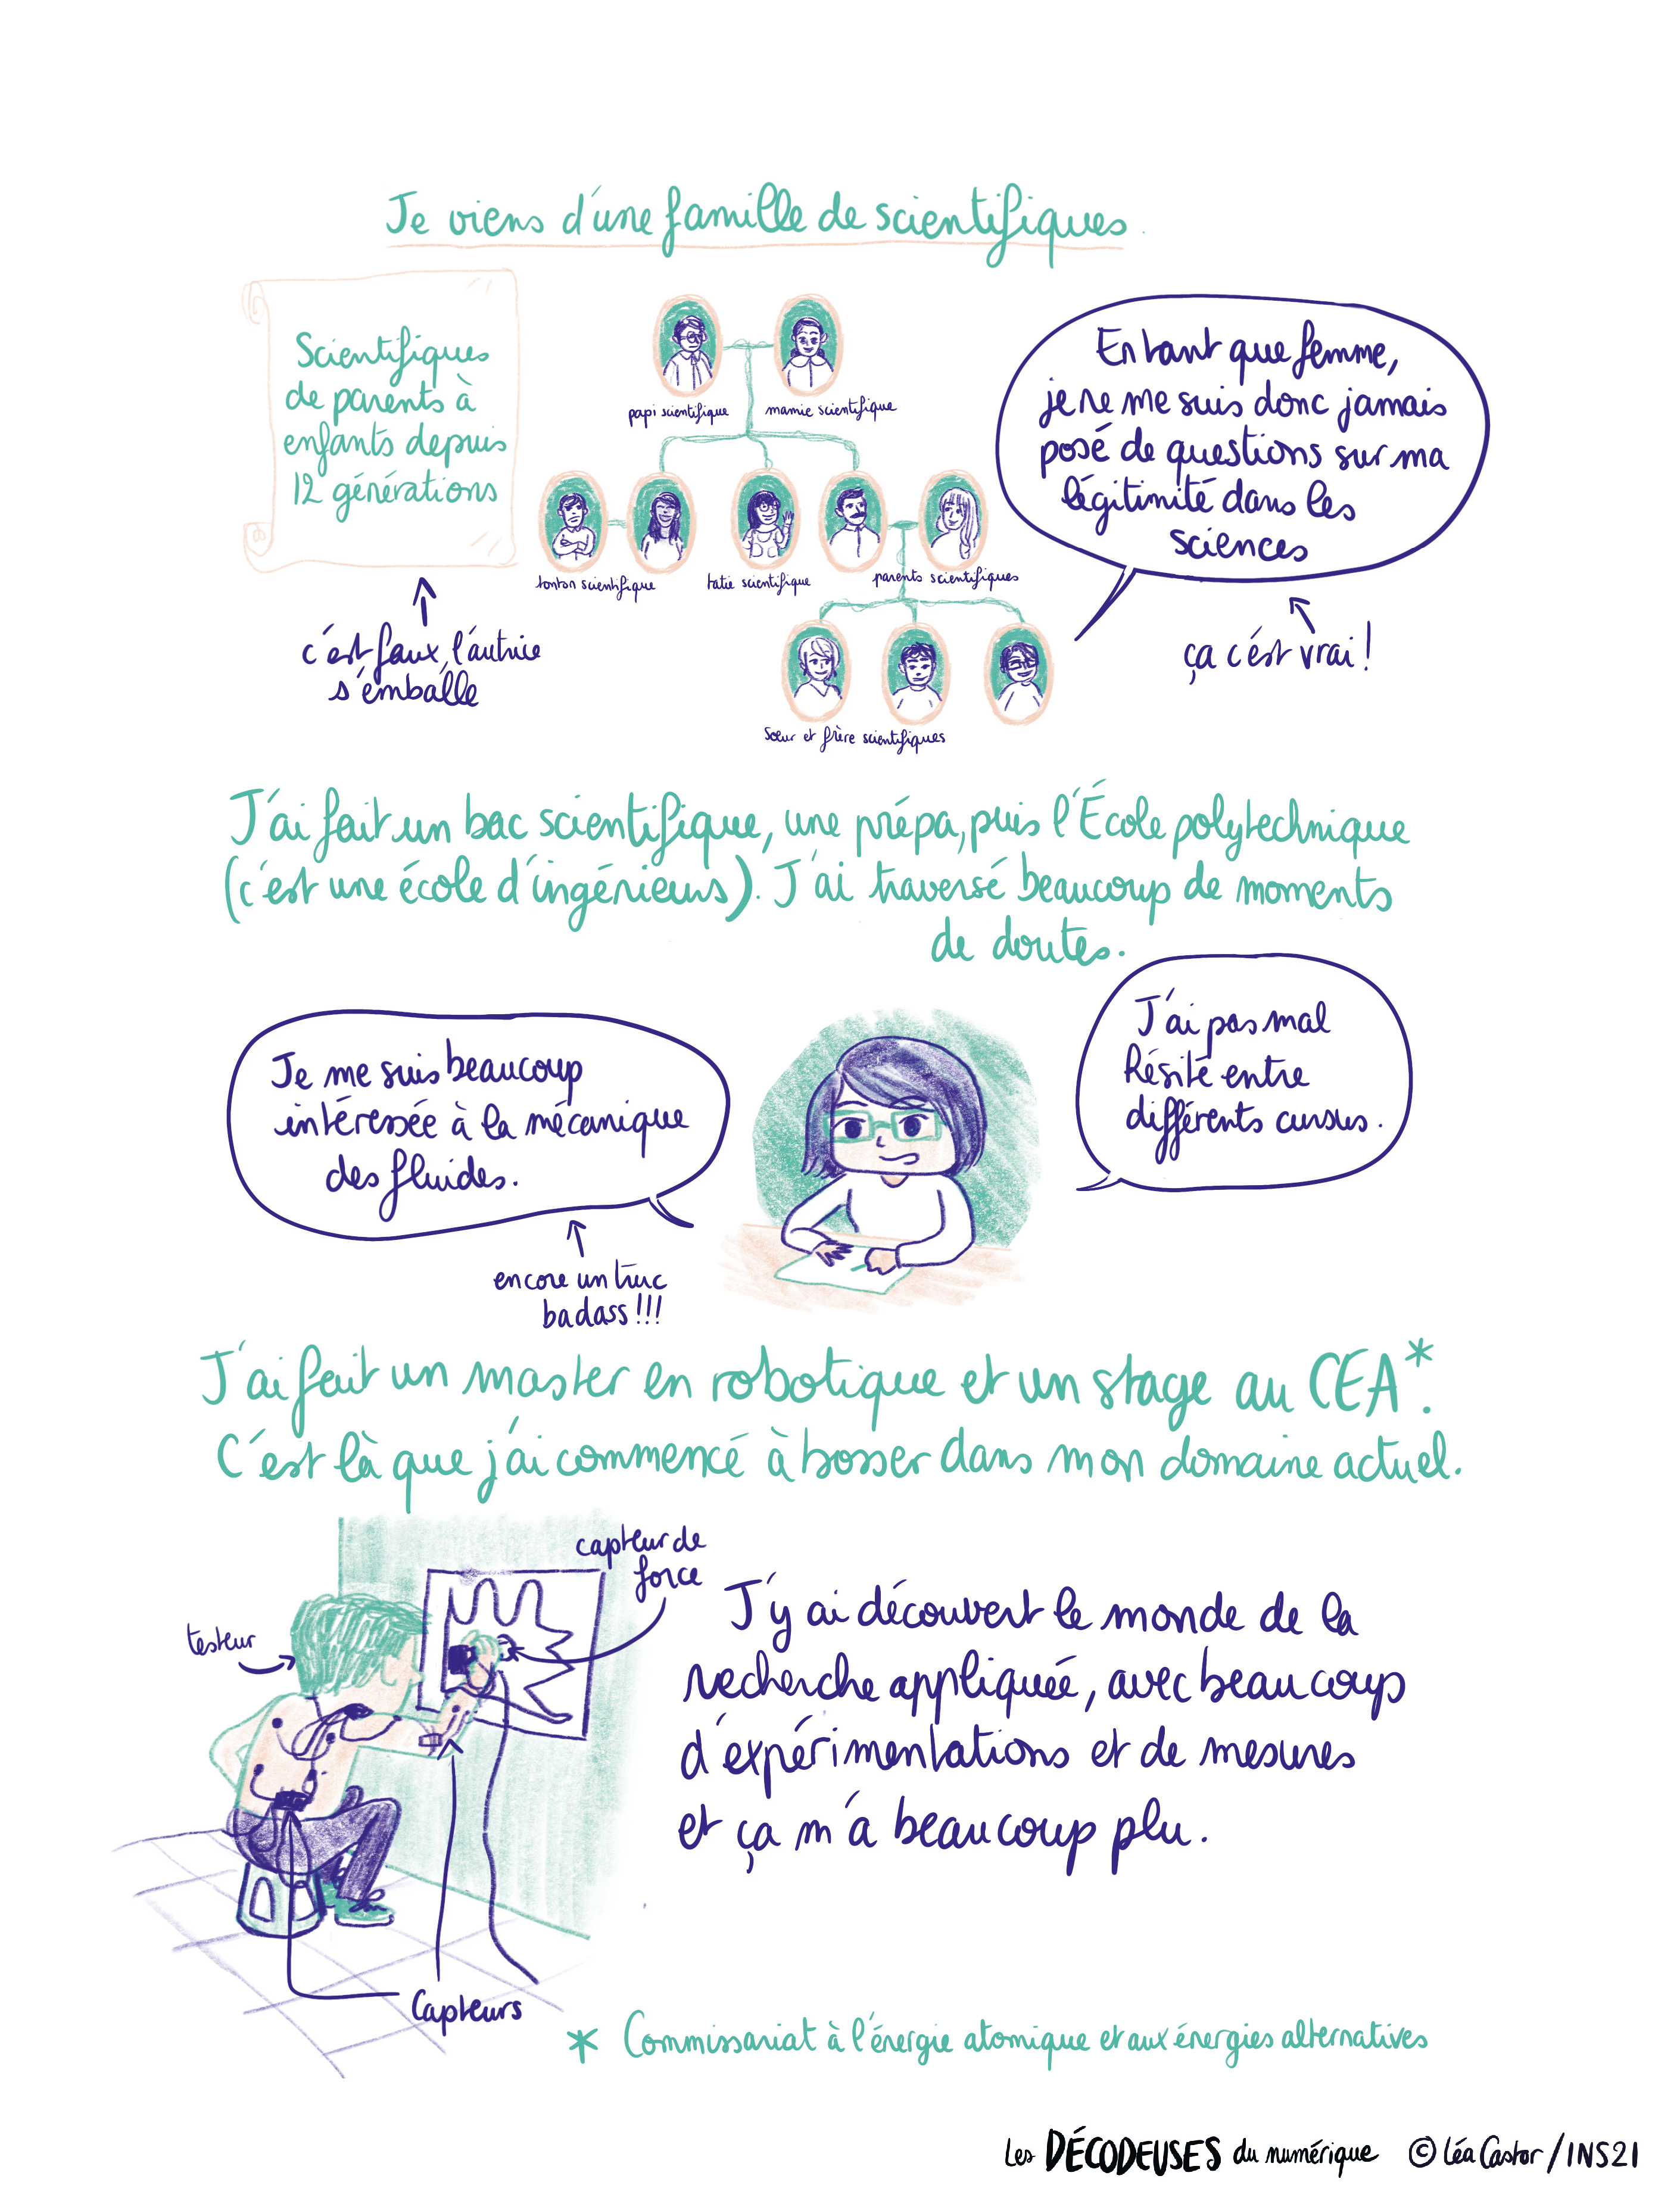 Je viens d'une famille de scientifiques
Scientifiques
de parents à
enfants depuis
12 générations
c'est faux, l'autrice
s'emballe
papi scientifique
mamie scientifique
tonton scientifique
tatie scientifique
parents scientifiques
Sœur et frère scientifiques
En tant que femme,
je ne me suis donc jamais
posé de questions sur ma
légitimité dans les
sciences
ça c'est vrai !
J'ai fait un bac scientifique, une prépa, puis l'École polytechnique
(c'est une école d'ingénieurs). J'ai traversé beaucoup de moments
de doutes.
Je me suis beaucoup
intéressée à la mécanique
des fluides.
encore un truc
badass !!!
J'ai pas mal
hésité entre
différents cursus.
J'ai fait un master en robotique et un stage au CEA*.
C'est là que j'ai commencé à bosser dans mon domaine actuel.
capteur de
force
testeur
Capteurs
J'y ai découvert le monde de la
recherche appliquée, avec beaucoup
d'expérimentations et de mesures
et ça m'a beaucoup plu.
* Commissariat à l'énergie atomique et aux énergies alternatives
Les DÉCODEUSES du numérique © Léa Castor / INS2I